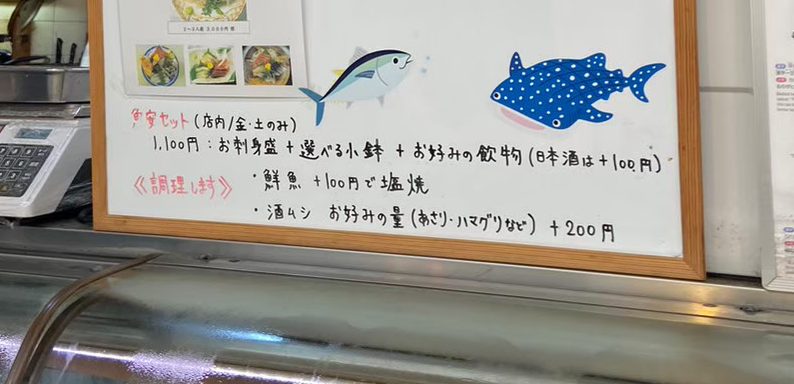 2~3人前 3,000円 税
魚安セット (店内/金・土のみ)
1,100円:お刺身盛+選べる小鉢+お好みの飲物(日本酒は+100円)
《調理します》
・鮮魚 +100円で塩焼
・酒ムシ お好みの量(あさり・ハマグリなど) +200円